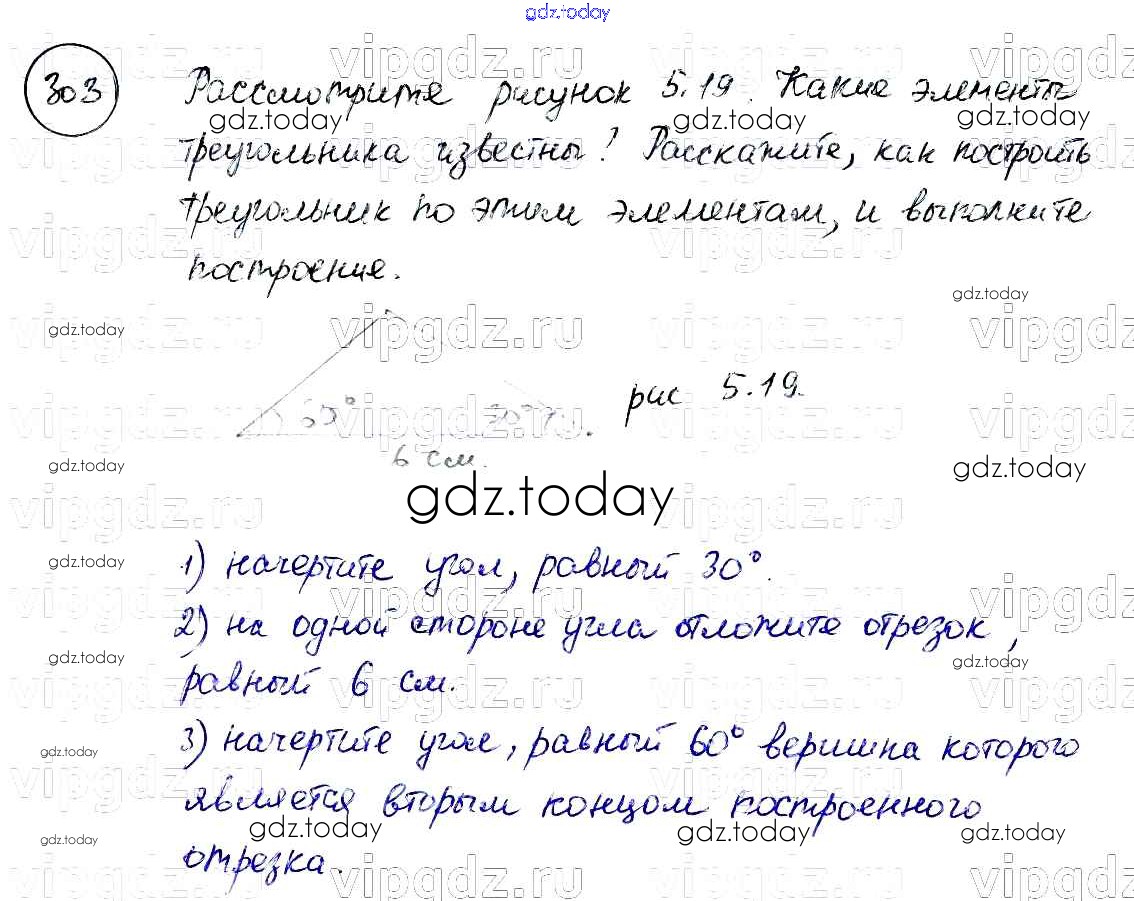 gdz.today
303
Рассмотрите рисунок 5.19. Какие элементы
треугольника известны? Расскажите, как построить
треугольник по этим элементам, и выполните
построение.
30°
6 см.
рис 5.19.
gdz.today
1) начертите угол, равный 30°.
2) на одной стороне угла отложите отрезок,
равный 6 см.
3) начертите угол, равный 60° вершина которого
является вторым концом построенного
отрезка.
vipgdz.ru